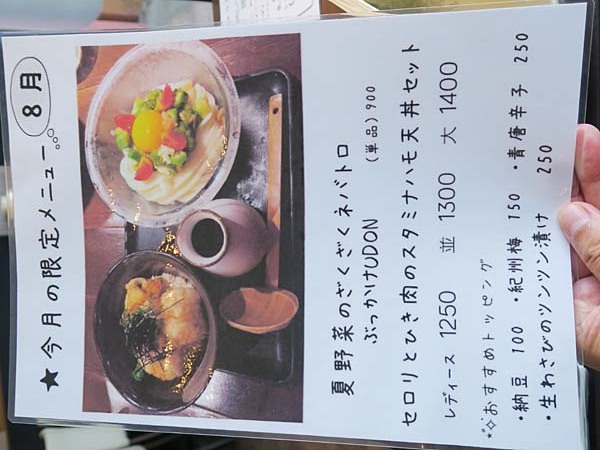 ★今月の限定メニュー 8月
夏野菜のざくざくネバトロ
ぶっかけUDON (単品)900
セロリとひき肉のスタミナハモ天丼セット
レディース 1250 並 1300 大 1400
おすすめトッピング
・納豆 100 ・紀州梅 150 ・青唐辛子 250
・生わさびのツンツン漬け 250